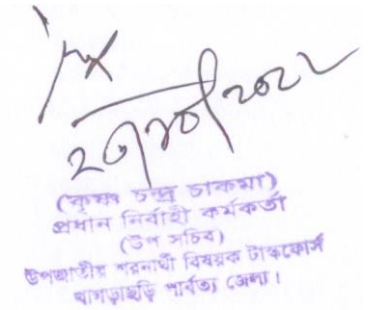 (কৃষ্ণ চন্দ্র চাকমা)
প্রধান নির্বাহী কর্মকর্তা
(উপ সচিব)
উপজাতীয় শরনার্থী বিষয়ক টাস্কফোর্স
খাগড়াছড়ি পার্বত্য জেলা।